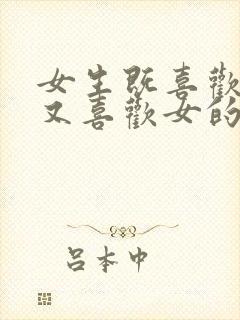 女生既喜歡
又喜歡女的
呂本中